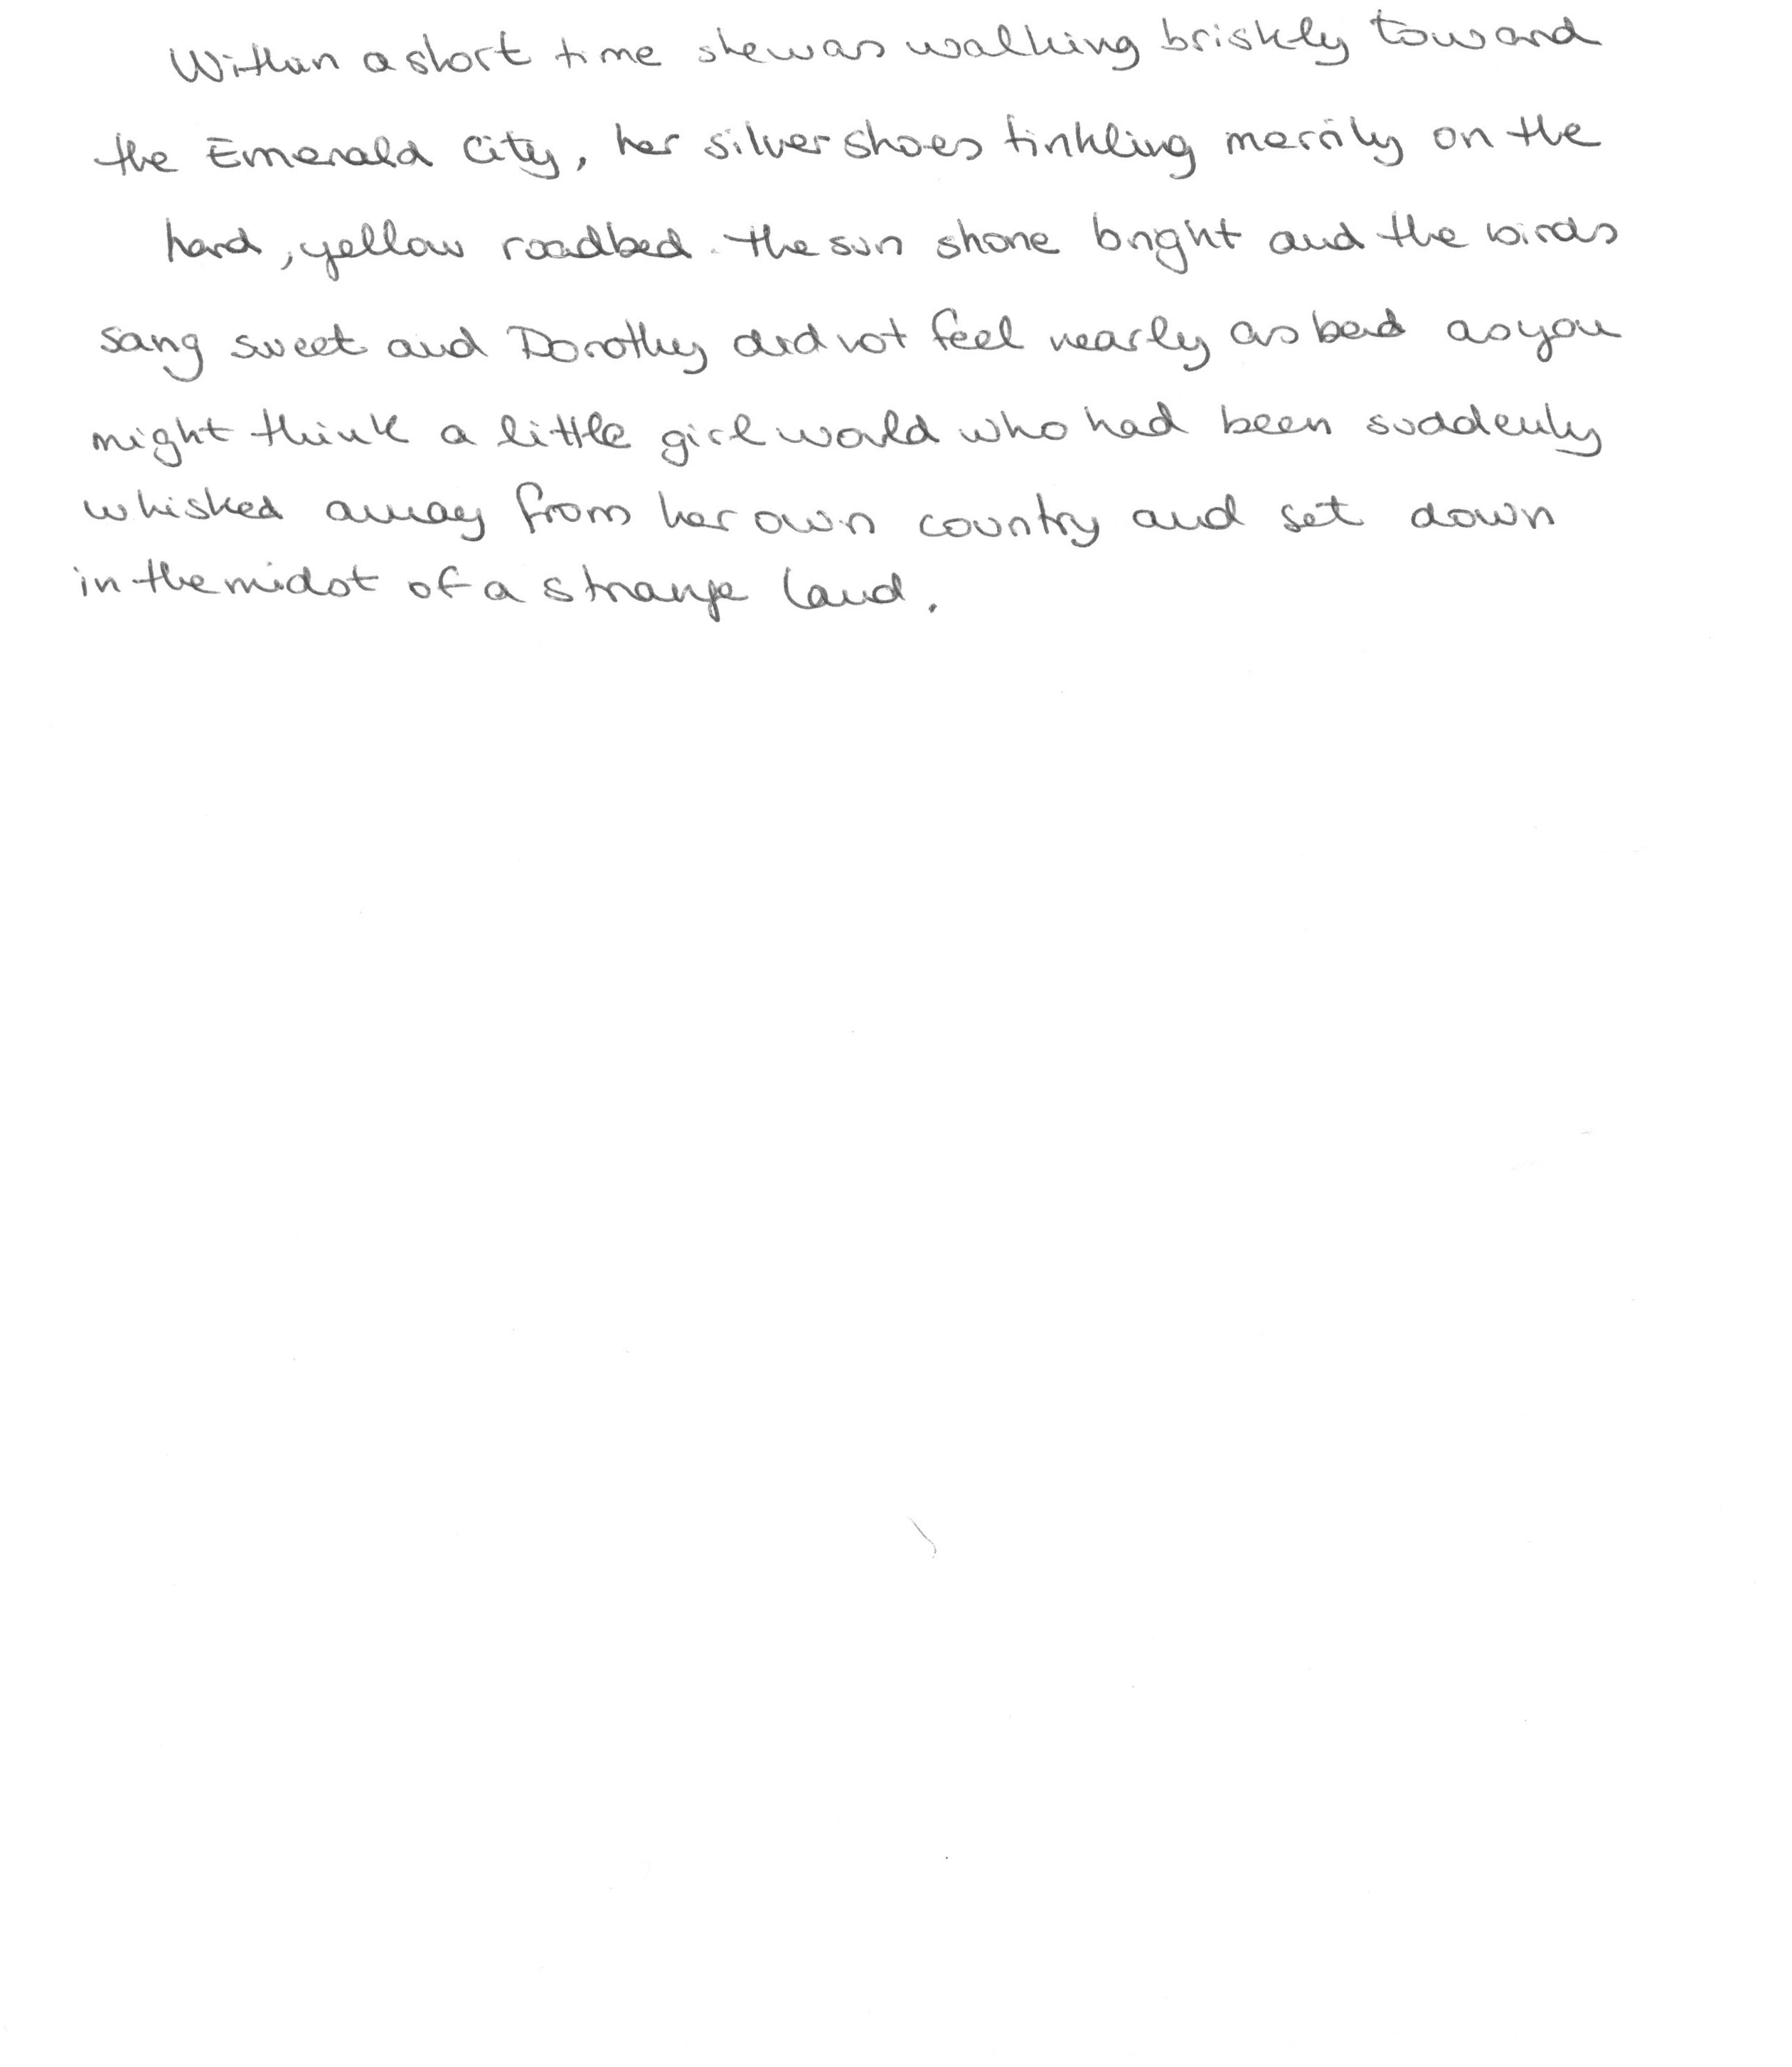 Within a short time she was walking briskly toward
the Emerald City, her silver shoes tinkling merrily on the
hard, yellow roadbed. The sun shone bright and the birds
sang sweet and Dorothy did not feel nearly as bad as you
might think a little girl would who had been suddenly
whisked away from her own country and set down
in the midst of a strange land.